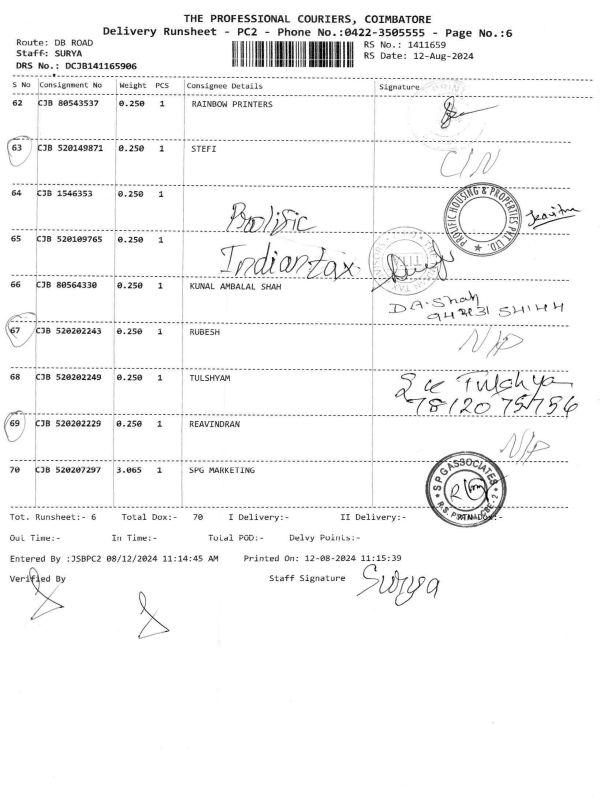 THE PROFESSIONAL COURIERS, COIMBATORE
Delivery Runsheet - PC2 - Phone No.:0422-3505555 - Page No.:6
Route: DB ROAD RS No.: 1411659
Staff: SURYA RS Date: 12-Aug-2024
DRS No.: DCJB141165906
S No Consignment No Weight PCS Consignee Details Signature
62 CJB 80543537 0.250 1 RAINBOW PRINTERS
63 CJB 520149871 0.250 1 STEFI C/N
64 CJB 1546353 0.250 1 Prolific PROLIFIC HOUSING & PROPERTIES PVT. LTD.
65 CJB 520109765 0.250 1 Indiantax
66 CJB 80564330 0.250 1 KUNAL AMBALAL SHAH D.A. Shah
67 CJB 520202243 0.250 1 RUBESH N/P
68 CJB 520202249 0.250 1 TULSHYAM Tulshyam
78120 75756
69 CJB 520202229 0.250 1 REAVINDRAN N/P
70 CJB 520207297 3.065 1 SPG MARKETING SPG ASSOCIATES
Tot. Runsheet:- 6 Total Dox:- 70 I Delivery:- II Delivery:-
Out Time:- In Time:- Total POD:- Delvy Points:-
Entered By :JSBPC2 08/12/2024 11:14:45 AM Printed On: 12-08-2024 11:15:39
Verified By Staff Signature Surya